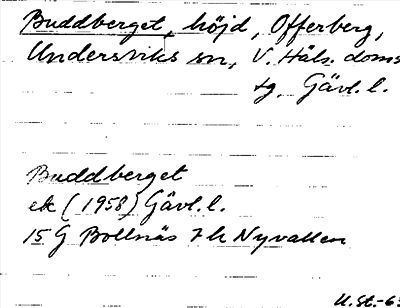 Buddberget, höjd, Offerberg,
Undersviks sn, V. Häls. doms
tg, Gävl. l.
Buddberget
ek (1958) Gävl. l.
15 G Bollnäs 7 h Nyvallen
U.St.-6